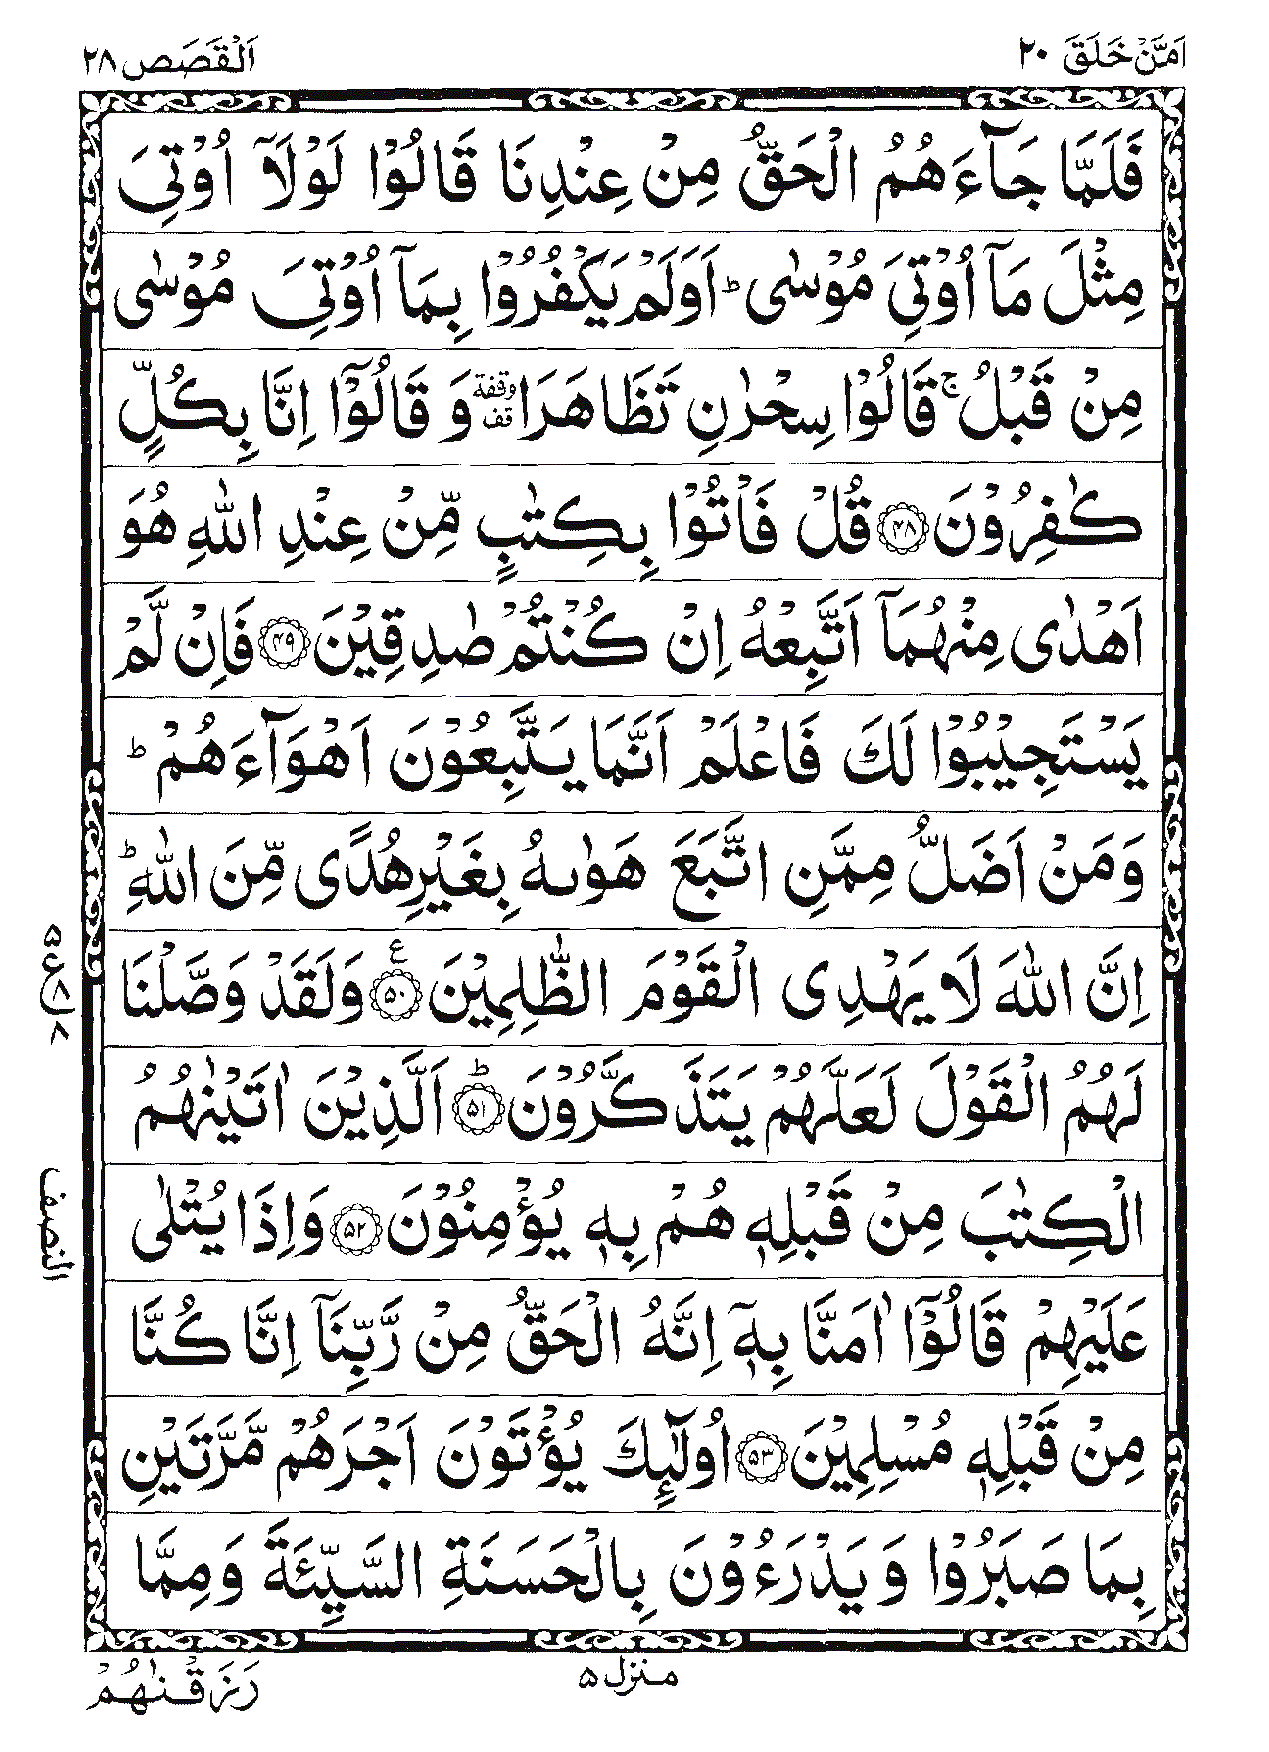 اَمَّنْ خَلَقَ ٢٠
اَلْقَصَص ٢٨
فَلَمَّا جَآءَهُمُ الْحَقُّ مِنْ عِنْدِنَا قَالُوْا لَوْلَآ اُوْتِیَ
مِثْلَ مَآ اُوْتِیَ مُوْسٰی ؕ اَوَلَمْ یَکْفُرُوْا بِمَآ اُوْتِیَ مُوْسٰی
مِنْ قَبْلُ ۚ قَالُوْا سِحْرٰنِ تَظَاهَرَا وقفة قف وَ قَالُوْۤا اِنَّا بِکُلٍّ
کٰفِرُوْنَ ﴿۴۸﴾ قُلْ فَاْتُوْا بِکِتٰبٍ مِّنْ عِنْدِ اللّٰهِ هُوَ
اَهْدٰی مِنْهُمَآ اَتَّبِعْهُ اِنْ کُنْتُمْ صٰدِقِیْنَ ﴿۴۹﴾ فَاِنْ لَّمْ
یَسْتَجِیْبُوْا لَکَ فَاعْلَمْ اَنَّمَا یَتَّبِعُوْنَ اَهْوَآءَهُمْ ؕ
وَمَنْ اَضَلُّ مِمَّنِ اتَّبَعَ هَوٰىهُ بِغَیْرِ هُدًی مِّنَ اللّٰهِ ؕ
اِنَّ اللّٰهَ لَا یَهْدِی الْقَوْمَ الظّٰلِمِیْنَ ﴿۵۰﴾ ع وَلَقَدْ وَصَّلْنَا
لَهُمُ الْقَوْلَ لَعَلَّهُمْ یَتَذَکَّرُوْنَ ﴿۵۱﴾ ؕ اَلَّذِیْنَ اٰتَیْنٰهُمُ
الْکِتٰبَ مِنْ قَبْلِهٖ هُمْ بِهٖ یُؤْمِنُوْنَ ﴿۵۲﴾ وَاِذَا یُتْلٰی
عَلَیْهِمْ قَالُوْۤا اٰمَنَّا بِهٖۤ اِنَّهُ الْحَقُّ مِنْ رَّبِّنَآ اِنَّا کُنَّا
مِنْ قَبْلِهٖ مُسْلِمِیْنَ ﴿۵۳﴾ اُولٰٓئِکَ یُؤْتَوْنَ اَجْرَهُمْ مَّرَّتَیْنِ
بِمَا صَبَرُوْا وَ یَدْرَءُوْنَ بِالْحَسَنَةِ السَّیِّئَةَ وَمِمَّا
۵
ع ۸
۸
النصف
منزل ۵
رَزَقْنٰهُمْ